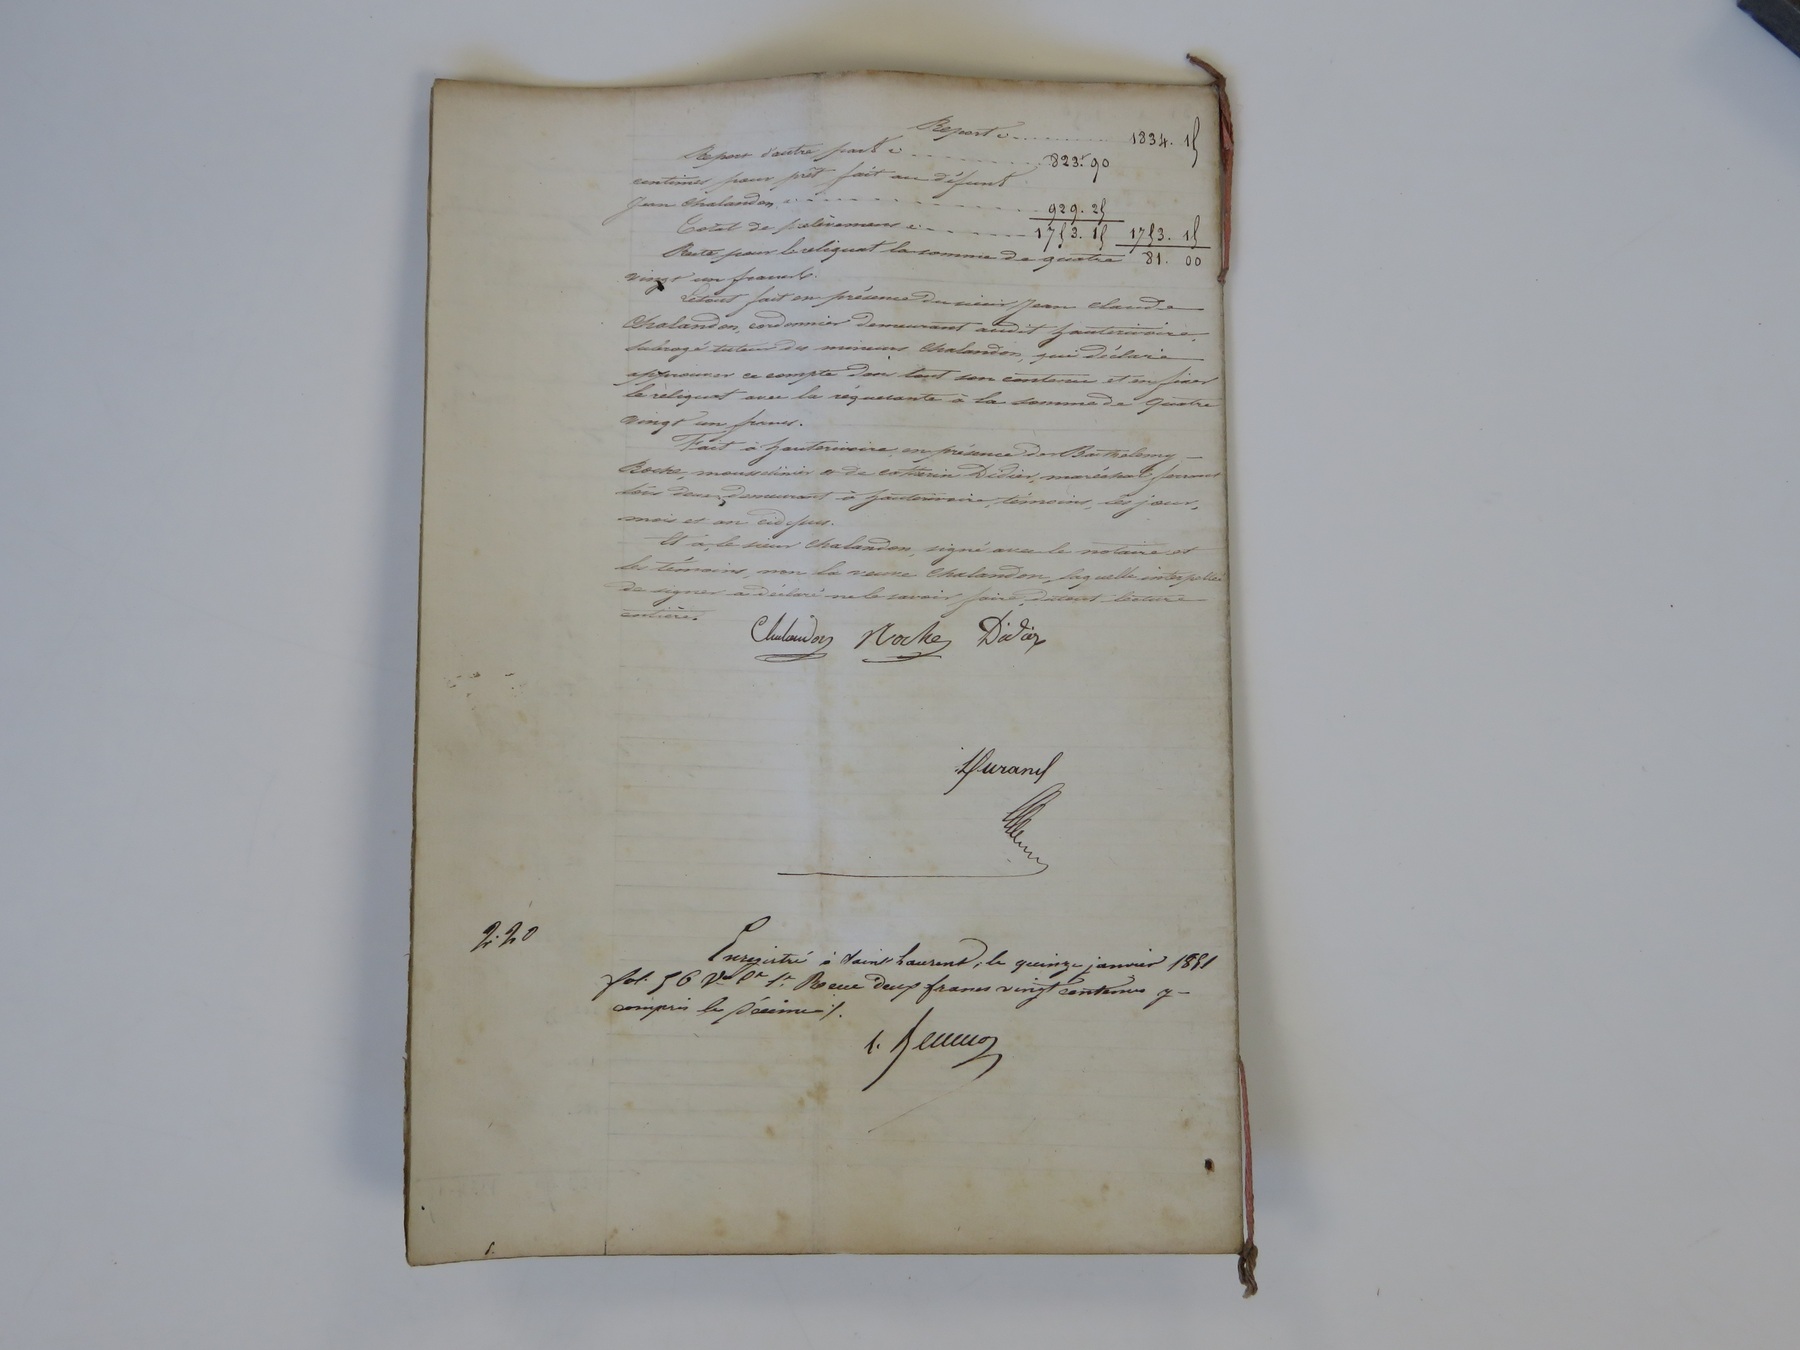 Report ci ........ 1834. 15
Report d'autre part ci ........ 823. 90
centimes pour prêt fait au défunt
Jean Chalandon ci ........ 929. 25
Total de prélèvemens ci ........ 1753. 15 1753. 15
Reste pour le reliquat la somme de quatre 81. 00
vingt un francs.
Le tout fait en présence du sieur Jean Claude
Chalandon, cordonnier demeurant audit hauterivoire,
subrogé tuteur des mineurs Chalandon, qui déclare
approuver ce compte dans tout son contenu et en fixer
le reliquat avec la requérante à la somme de quatre
vingt un francs.
Fait à hauterivoire, en présence de Barthelemy
Roche, mousselinier et de Catherin Didier, maréchal ferrant
tous deux demeurant à hauterivoire, témoins, les jour,
mois et an ci dessus.
Et a, le sieur Chalandon, signé avec le notaire et
les témoins, non la veuve Chalandon, laquelle interpellée
de signer a déclaré ne le savoir faire, du tout lecture
entière.
Chalandon Roche Didier
Durand
2. 20
Enregistré à Saint Laurent, le quinze janvier 1851
fol. 56 Vo Ce 1re Reçu deux francs vingt centimes y
compris le décime /.